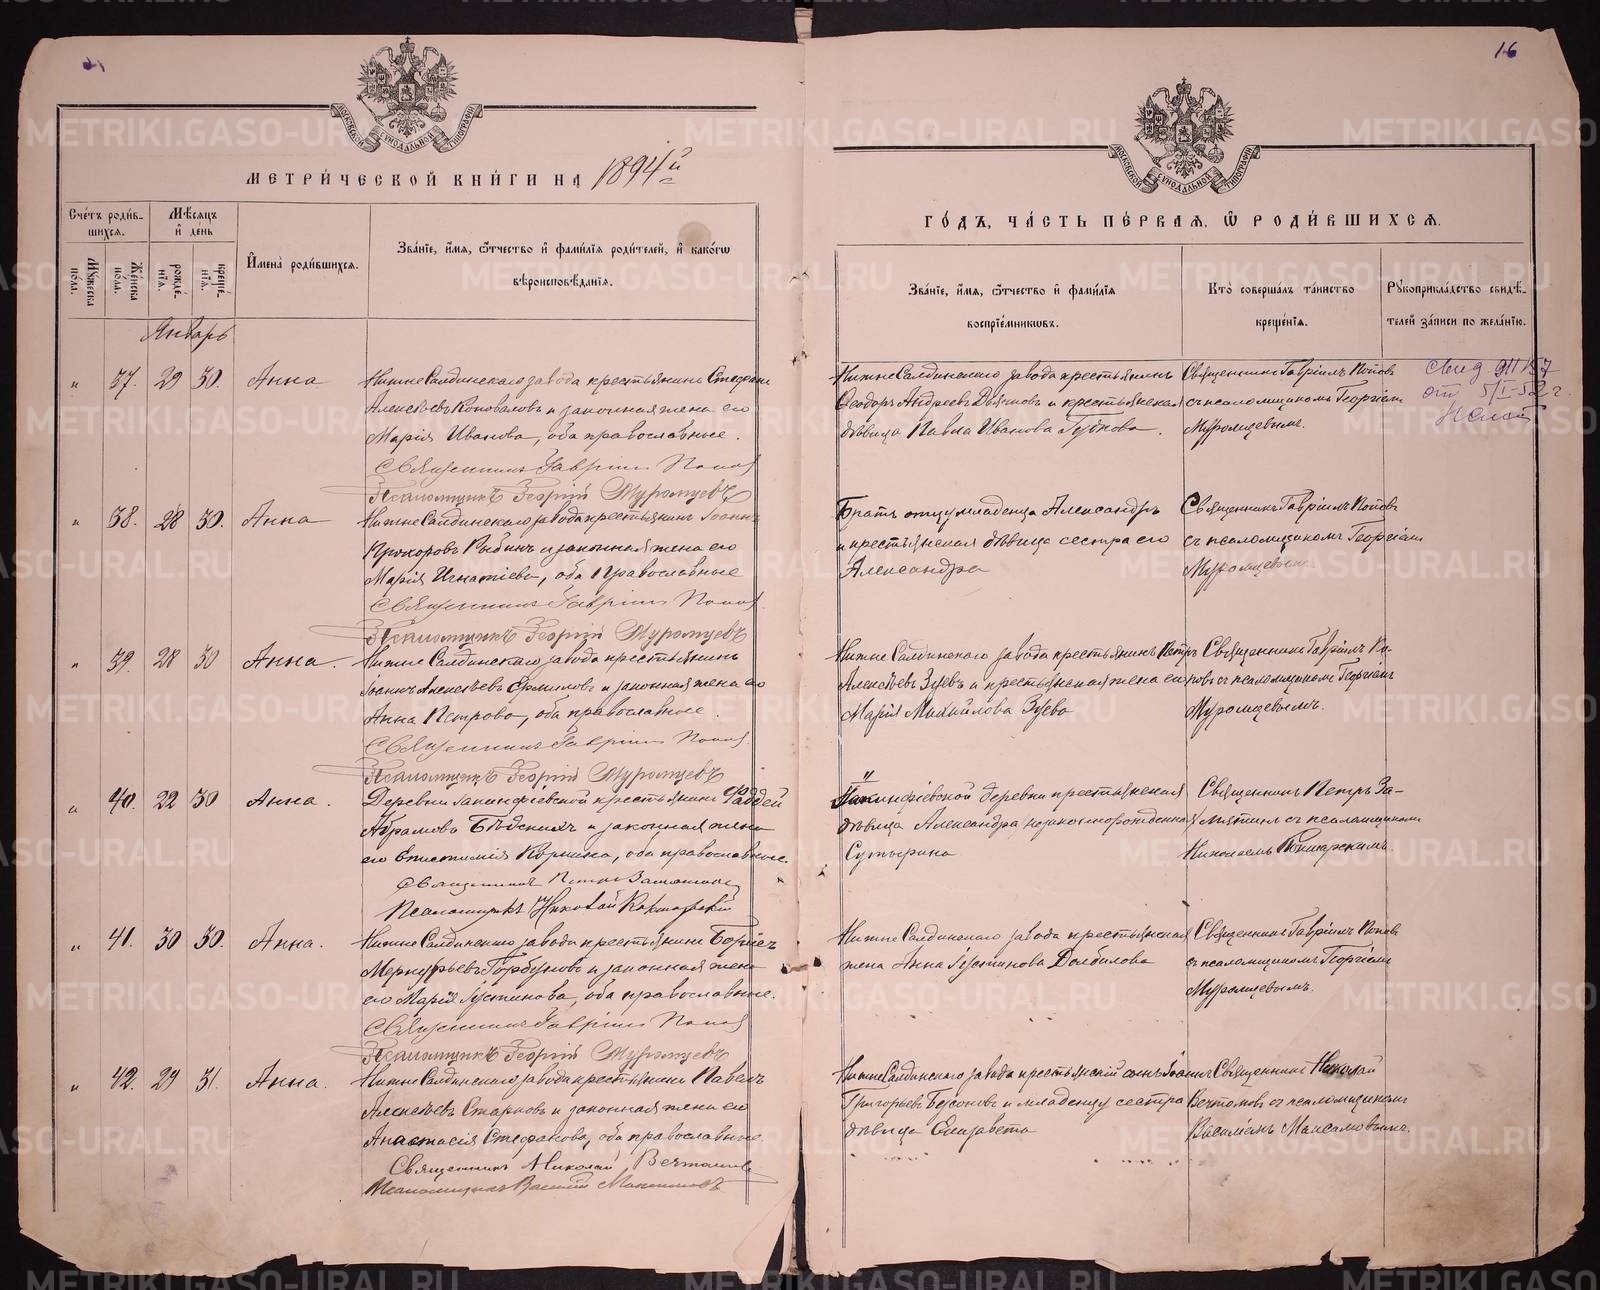 16
МОСКОВСКОЙ СУНОДАЛЬНОЙ ТИПОГРАФІИ
МОСКОВСКОЙ СУНОДАЛЬНОЙ ТИПОГРАФІИ
МЕТРИЧЕСКОЙ КНИГИ НА 1894 й
ГОДЪ, ЧАСТЬ ПЕРВАЯ, Ѡ РОДИВШИХСЯ.
Счетъ родившихся.
Мужеска пола.
Женска пола.
Мѣсяцъ и день
рожденїя.
крещенїя.
Имена родившихся.
Званїе, имя, ѿчество и фамилїя родителей, и какогѡ
вѣроисповѣданїя.
Званїе, имя, ѿчество и фамилїя
воспрїемниковъ.
Кто совершалъ таинство
крещенїя.
Рукоприкладство свидѣ-
телей записи по желанїю.
Январь
" 37. 29 30. Анна
Нижне Салдинскаго завода крестьянинъ Стефанъ
Алексѣевъ Коноваловъ и законная жена его
Марія Иванова, оба православные.
Священникъ Гавріилъ Поповъ
Псаломщикъ Георгій Муромцевъ
Нижне Салдинскаго завода крестьянинъ
Ѳеодоръ Андреевъ Дьячковъ и крестьянская
дѣвица Павла Иванова Губкова.
Священникъ Гавріилъ Поповъ
съ псаломщикомъ Георгіемъ
Муромцевымъ.
от 5/I-52 г.
" 38. 28 30. Анна
Нижне Салдинскаго завода крестьянинъ Іоаннъ
Прохоровъ Рыбинъ и законная жена его
Марія Игнатіева, оба православные
Священникъ Гавріилъ Поповъ
Псаломщикъ Георгій Муромцевъ
Братъ отцу младенца Александръ
и крестьянская дѣвица сестра его
Александра
Священникъ Гавріилъ Поповъ
съ псаломщикомъ Георгіемъ
Муромцевымъ.
" 39. 28 30 Анна.
Нижне Салдинскаго завода крестьянинъ
Іоаннъ Алексѣевъ Ермиловъ и законная жена его
Анна Петрова, оба православные.
Священникъ Гавріилъ Поповъ
Псаломщикъ Георгій Муромцевъ
Нижне Салдинскаго завода крестьянинъ Петръ
Алексѣевъ Зуевъ и крестьянская жена его
Марія Михайлова Зуева
Священникъ Гавріилъ По-
повъ съ псаломщикомъ Георгіемъ
Муромцевымъ.
" 40. 22 30 Анна.
Деревни крестьянинъ Фаддей
Абрамовъ и законная жена
его Епистимія, оба православные.
Священникъ Петръ
Псаломщикъ Николай
деревни крестьянская
дѣвица Александра, незаконнорожденная
Сутырина
Священникъ Петръ За-
съ псаломщикомъ
Николаемъ
" 41. 30 30. Анна.
Нижне Салдинскаго завода крестьянинъ Борисъ
Меркурьевъ Горбуновъ и законная жена
его Марія Іустинова, оба православные.
Священникъ Гавріилъ Поповъ
Псаломщикъ Георгій Муромцевъ
Нижне Салдинскаго завода крестьянская
жена Анна Іустинова Долбилова
Священникъ Гавріилъ Поповъ
съ псаломщикомъ Георгіемъ
Муромцевымъ.
" 42. 29 31. Анна.
Нижне Салдинскаго завода крестьянинъ Павелъ
Алексѣевъ Старковъ и законная жена его
Анастасія Стефанова, оба православные.
Священникъ Николай Вечтомовъ
Псаломщикъ Василій
Нижне Салдинскаго завода крестьянскій сынъ Іоаннъ
Григорьевъ Безсоновъ и младенцу сестра
дѣвица Елизавета
Священникъ Николай
Вечтомовъ съ псаломщикомъ